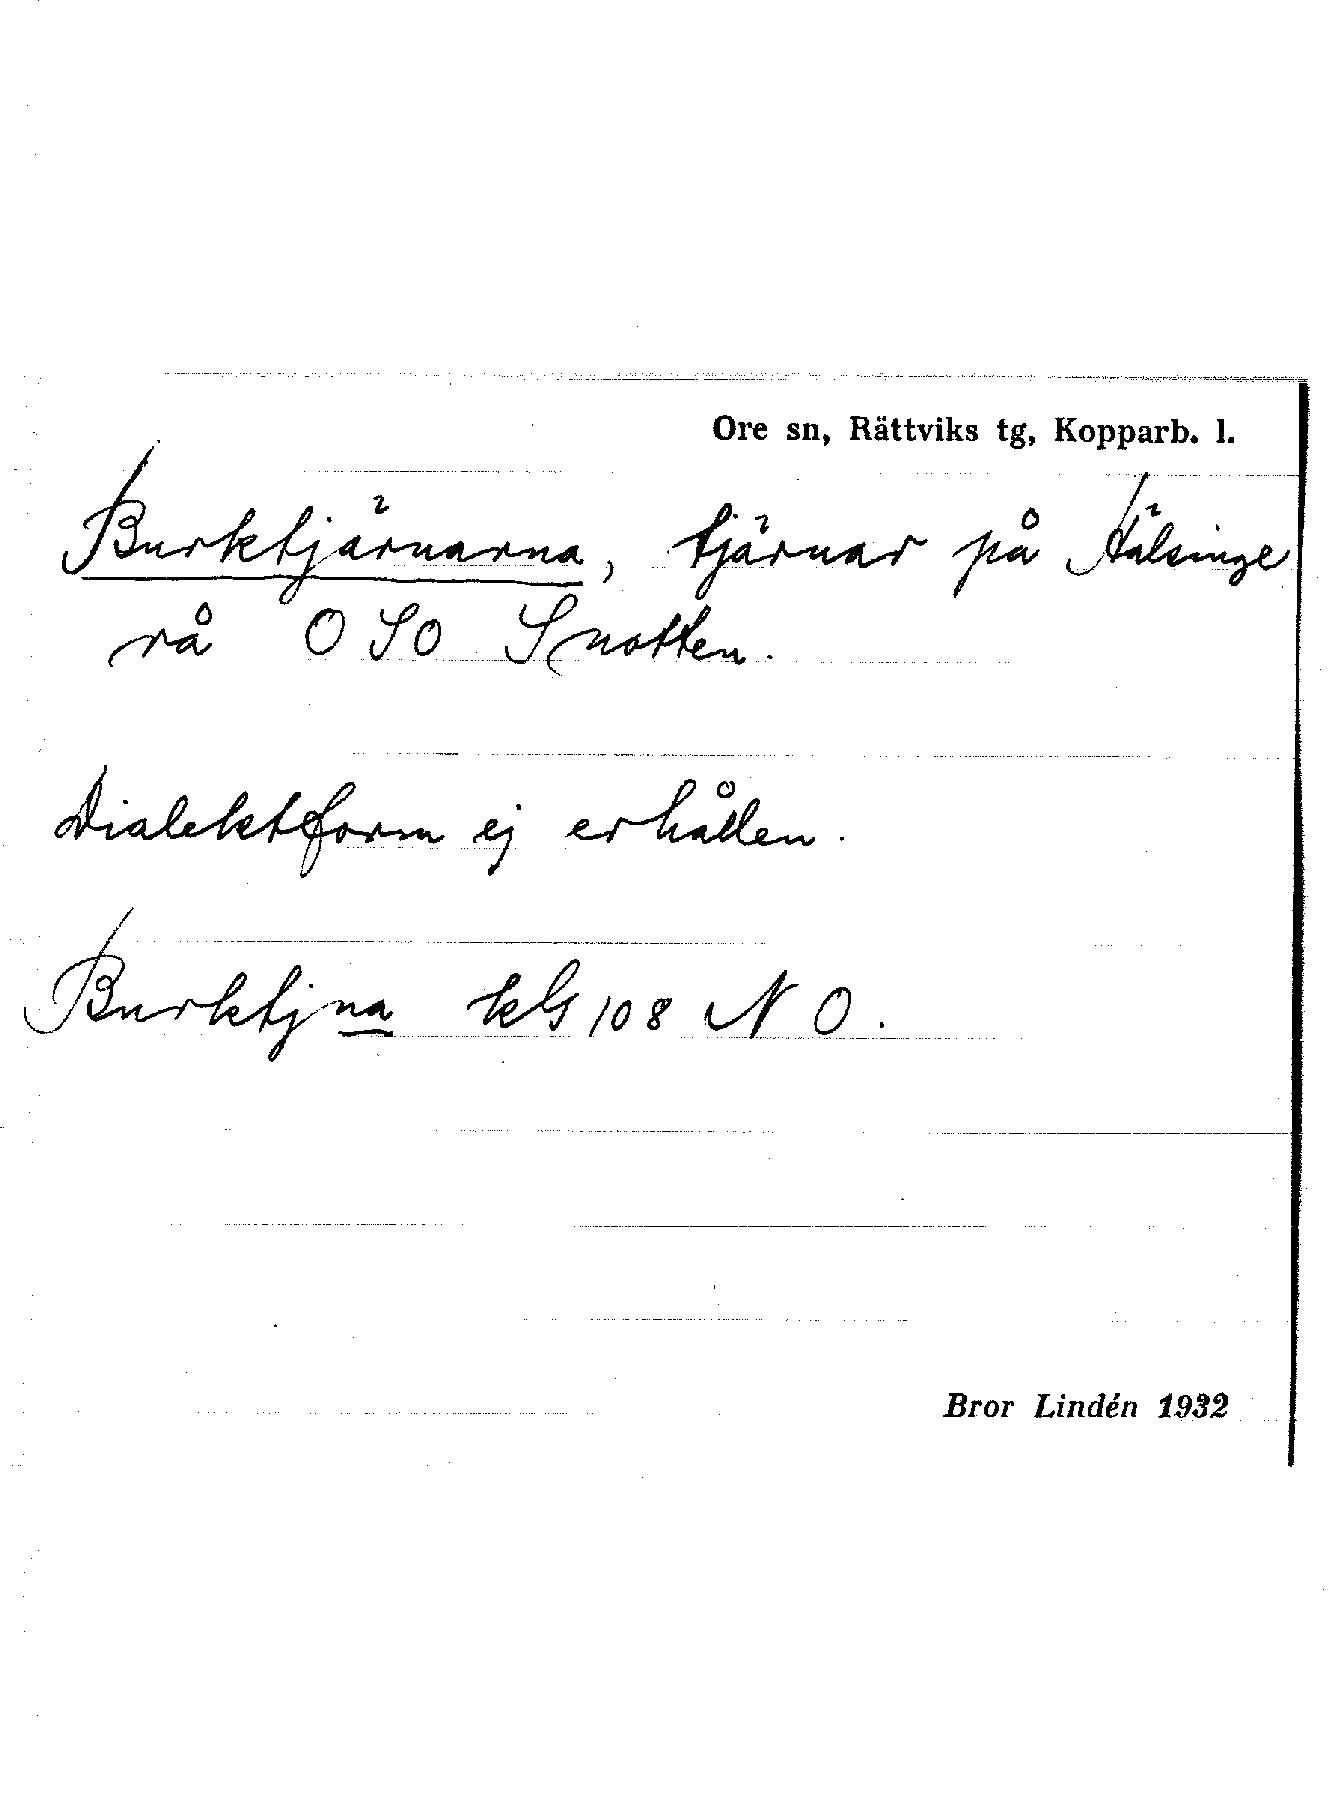 Ore sn, Rättviks tg, Kopparb. l.
Burktjärnarna, tjärnar på Hälsinge
rå OSO Snotten.
Dialektform ej erhållen.
Burktjna kbl 108 NO.
Bror Lindén 1932